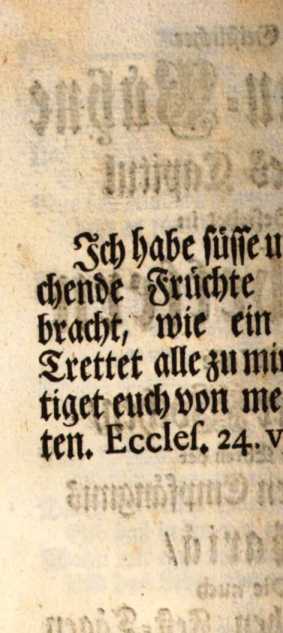 Ich habe süsse u
chende Früchte
bracht, wie ein
Trettet alle zu mir
tiget euch von me
ten. Eccles. 24. v